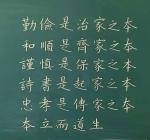 勤儉是治家之本
和順是齊家之本
謹慎是保家之本
詩書是起家之本
忠孝是傳家之本
本立而道生